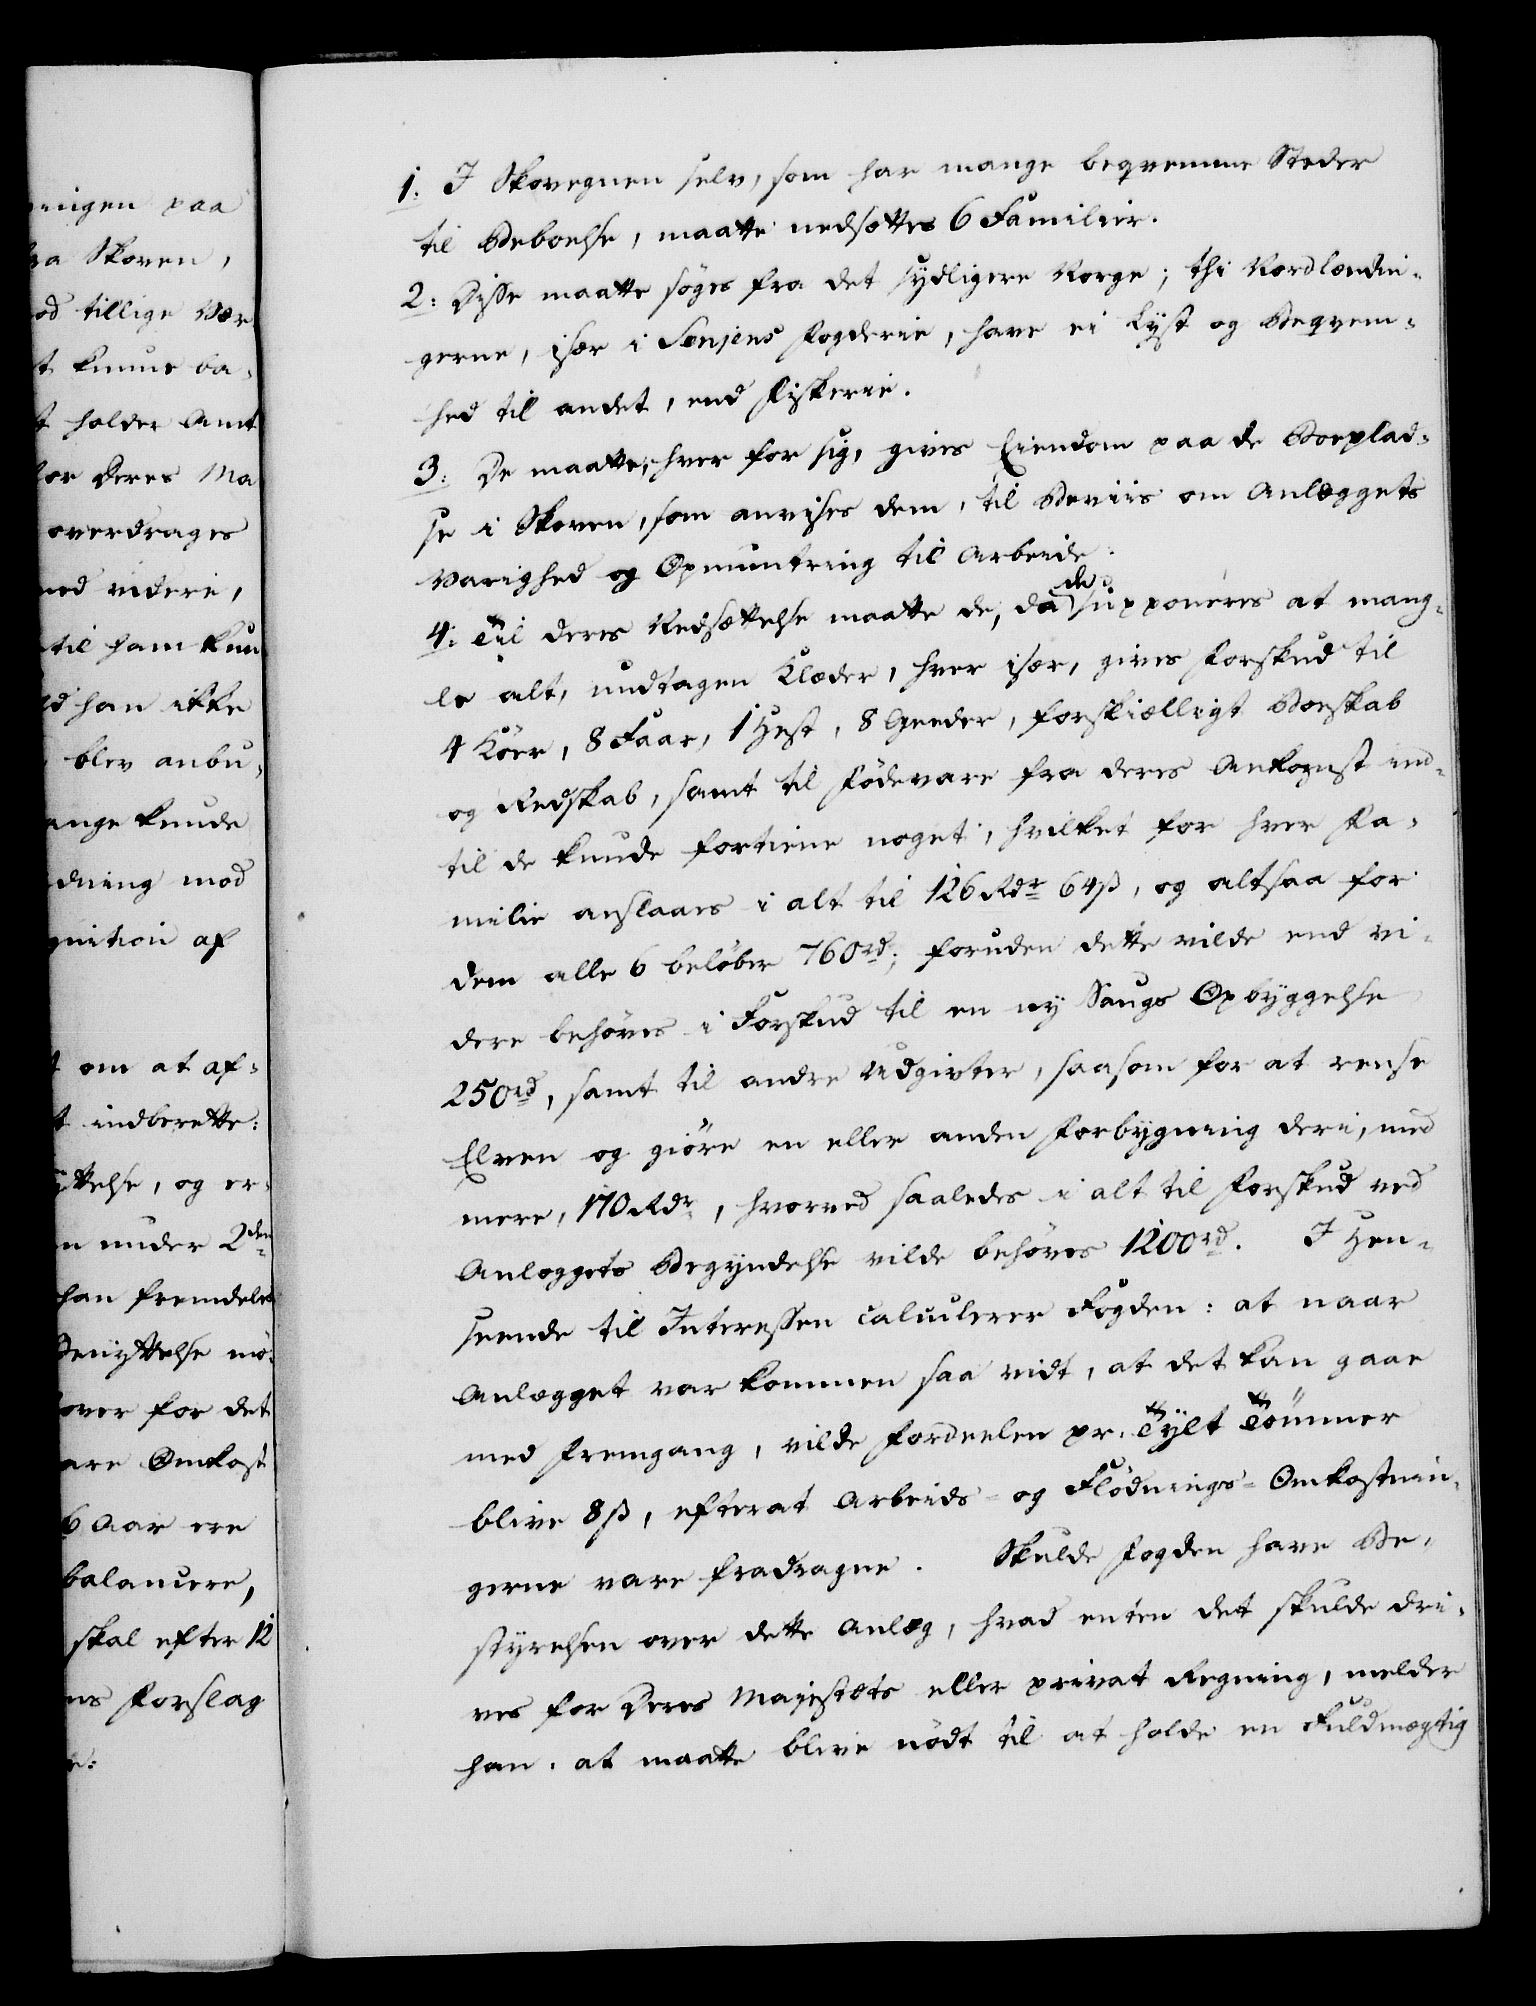 ningen paa
fra Skoven,
od tillige Vær
t kunne ba-
t holder Amt
for Deres Ma
overdrages
ned videre,
til ham kun
ld han ikke
blev anbu-
ange kunde
dning mod
gnition af
t om at af-
t indberette:
yttelse, og er-
n under 2den
han fremdeles
Benyttelse mö-
over for det
are Omkost
6 Aar ere
balancere,
skal efter 12
ns Forslag
e:
1: I Skovegnen selv, som har mange beqvemme Steder
til Beboelse, maatte nedsættes 6 Familier.
2: Disse maatte søges fra det sydligere Norge; thi Nordlændin-
gerne, især i Senjens Fogderie, have ei Lyst og Beqvem-
hed til andet, end Fiskerie.
3: De maatte, hver for sig, gives Eiendom paa de Boeplad-
se i Skoven, som anvises dem, til Beviis om Anlæggets
Varighed og Opmuntring til Arbeide.
4: Til deres Nedsættelse maatte de, da de supponeres at mang-
le alt, undtagen Klæder, hver især, gives Forskud til
4 Köer, 8 Faar, 1 Hest, 8 Geeder, forskiælligt Boeskab
og Redskab, samt til Födevare fra deres Ankomst ind-
til de kunde fortiene noget, hvilket for hver Fa-
milie anslaaes i alt til 126 Rdr 64 ß, og altsaa for
dem alle 6 belöber 760 rd; foruden dette vilde end vi-
dere behöves i Forskud til en ny Saugs Opbyggelse
250 rd, samt til andre Udgivter, saasom for at rense
Elven og giöre en eller anden Forbygning deri, med
mere, 170 Rdr, hvorved saaledes i alt til Forskud ved
Anlæggets Begyndelse vilde behöves 1200 rd. I Hen-
seende til Interessen calculerer Fogden: at naar
Anlægget var kommen saa vidt, at det kan gaae
med Fremgang, vilde Fordeelen pr. Tylt Tömmer
blive 8 ß, efterat Arbeids- og Flödnings-Omkostnin-
gerne vare fradragne. Skulde Fogden have Be-
styrelsen over dette Anlæg, hvad enten det skulde dri-
ves for Deres Majestæts eller privat Regning, melder
han at maatte blive nödt til at holde en Fuldmægtig